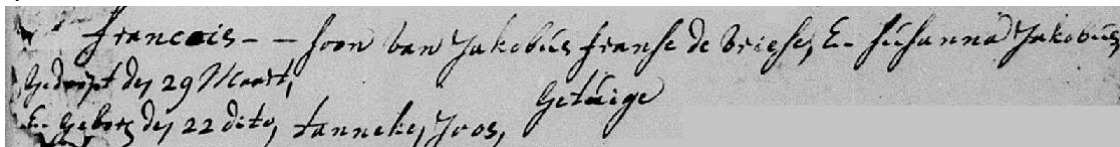 Francois - - soon van Jakobus franse de Vriese, E. Susanna Jakobus,
Gedoopt dey 29 Maart,
Getuige
E. Gebore dey 22 dito, tanneke, Joos,